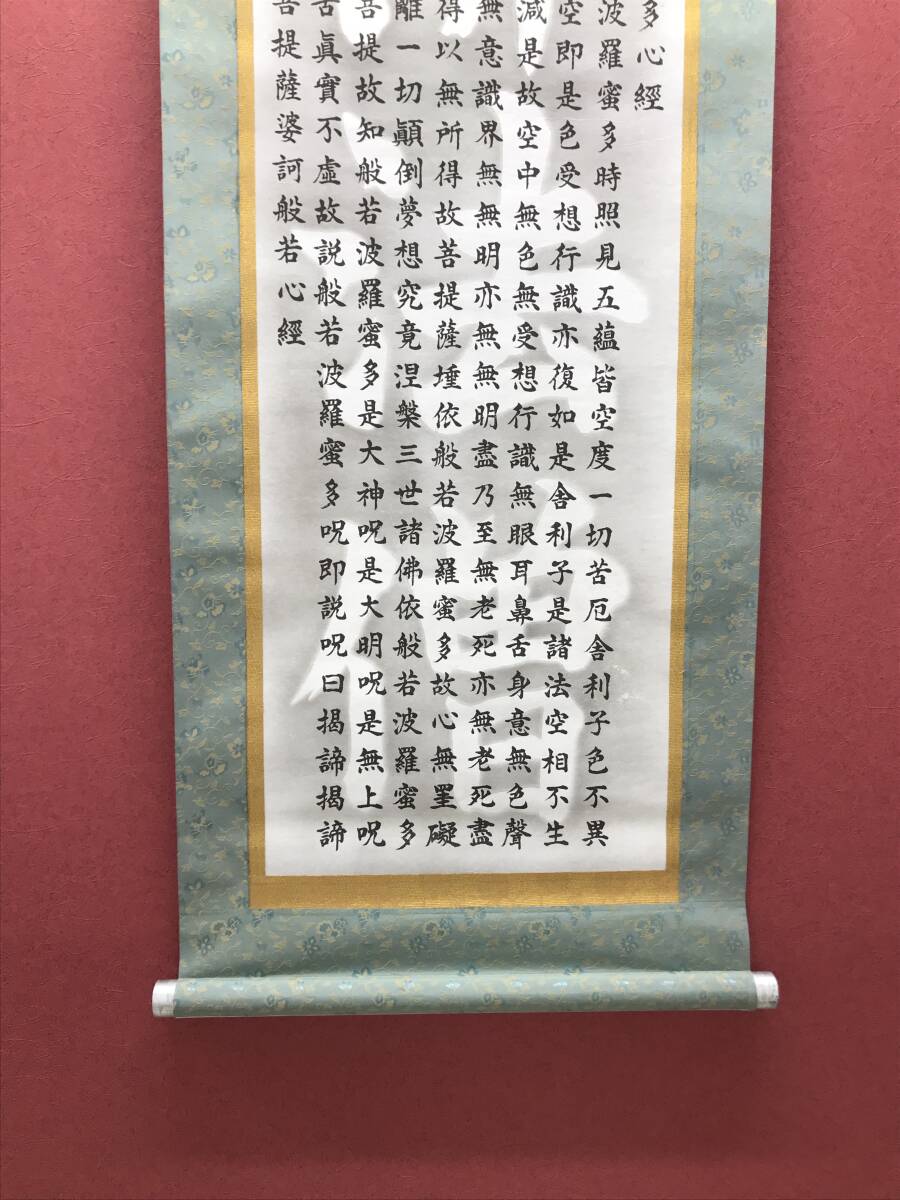 多心經
波羅蜜多時照見五蘊皆空度一切苦厄舍利子色不異
空即是色受想行識亦復如是舍利子是諸法空相不生
減是故空中無色無受想行識無眼耳鼻舌身意無色聲
無意識界無無明亦無無明盡乃至無老死亦無老死盡
得以無所得故菩提薩埵依般若波羅蜜多故心無罣礙
離一切顛倒夢想究竟涅槃三世諸佛依般若波羅蜜多
菩提故知般若波羅蜜多是大神呪是大明呪是無上呪
苦眞實不虛故説般若波羅蜜多呪即説呪曰揭諦揭諦
菩提薩婆訶般若心經
法僧